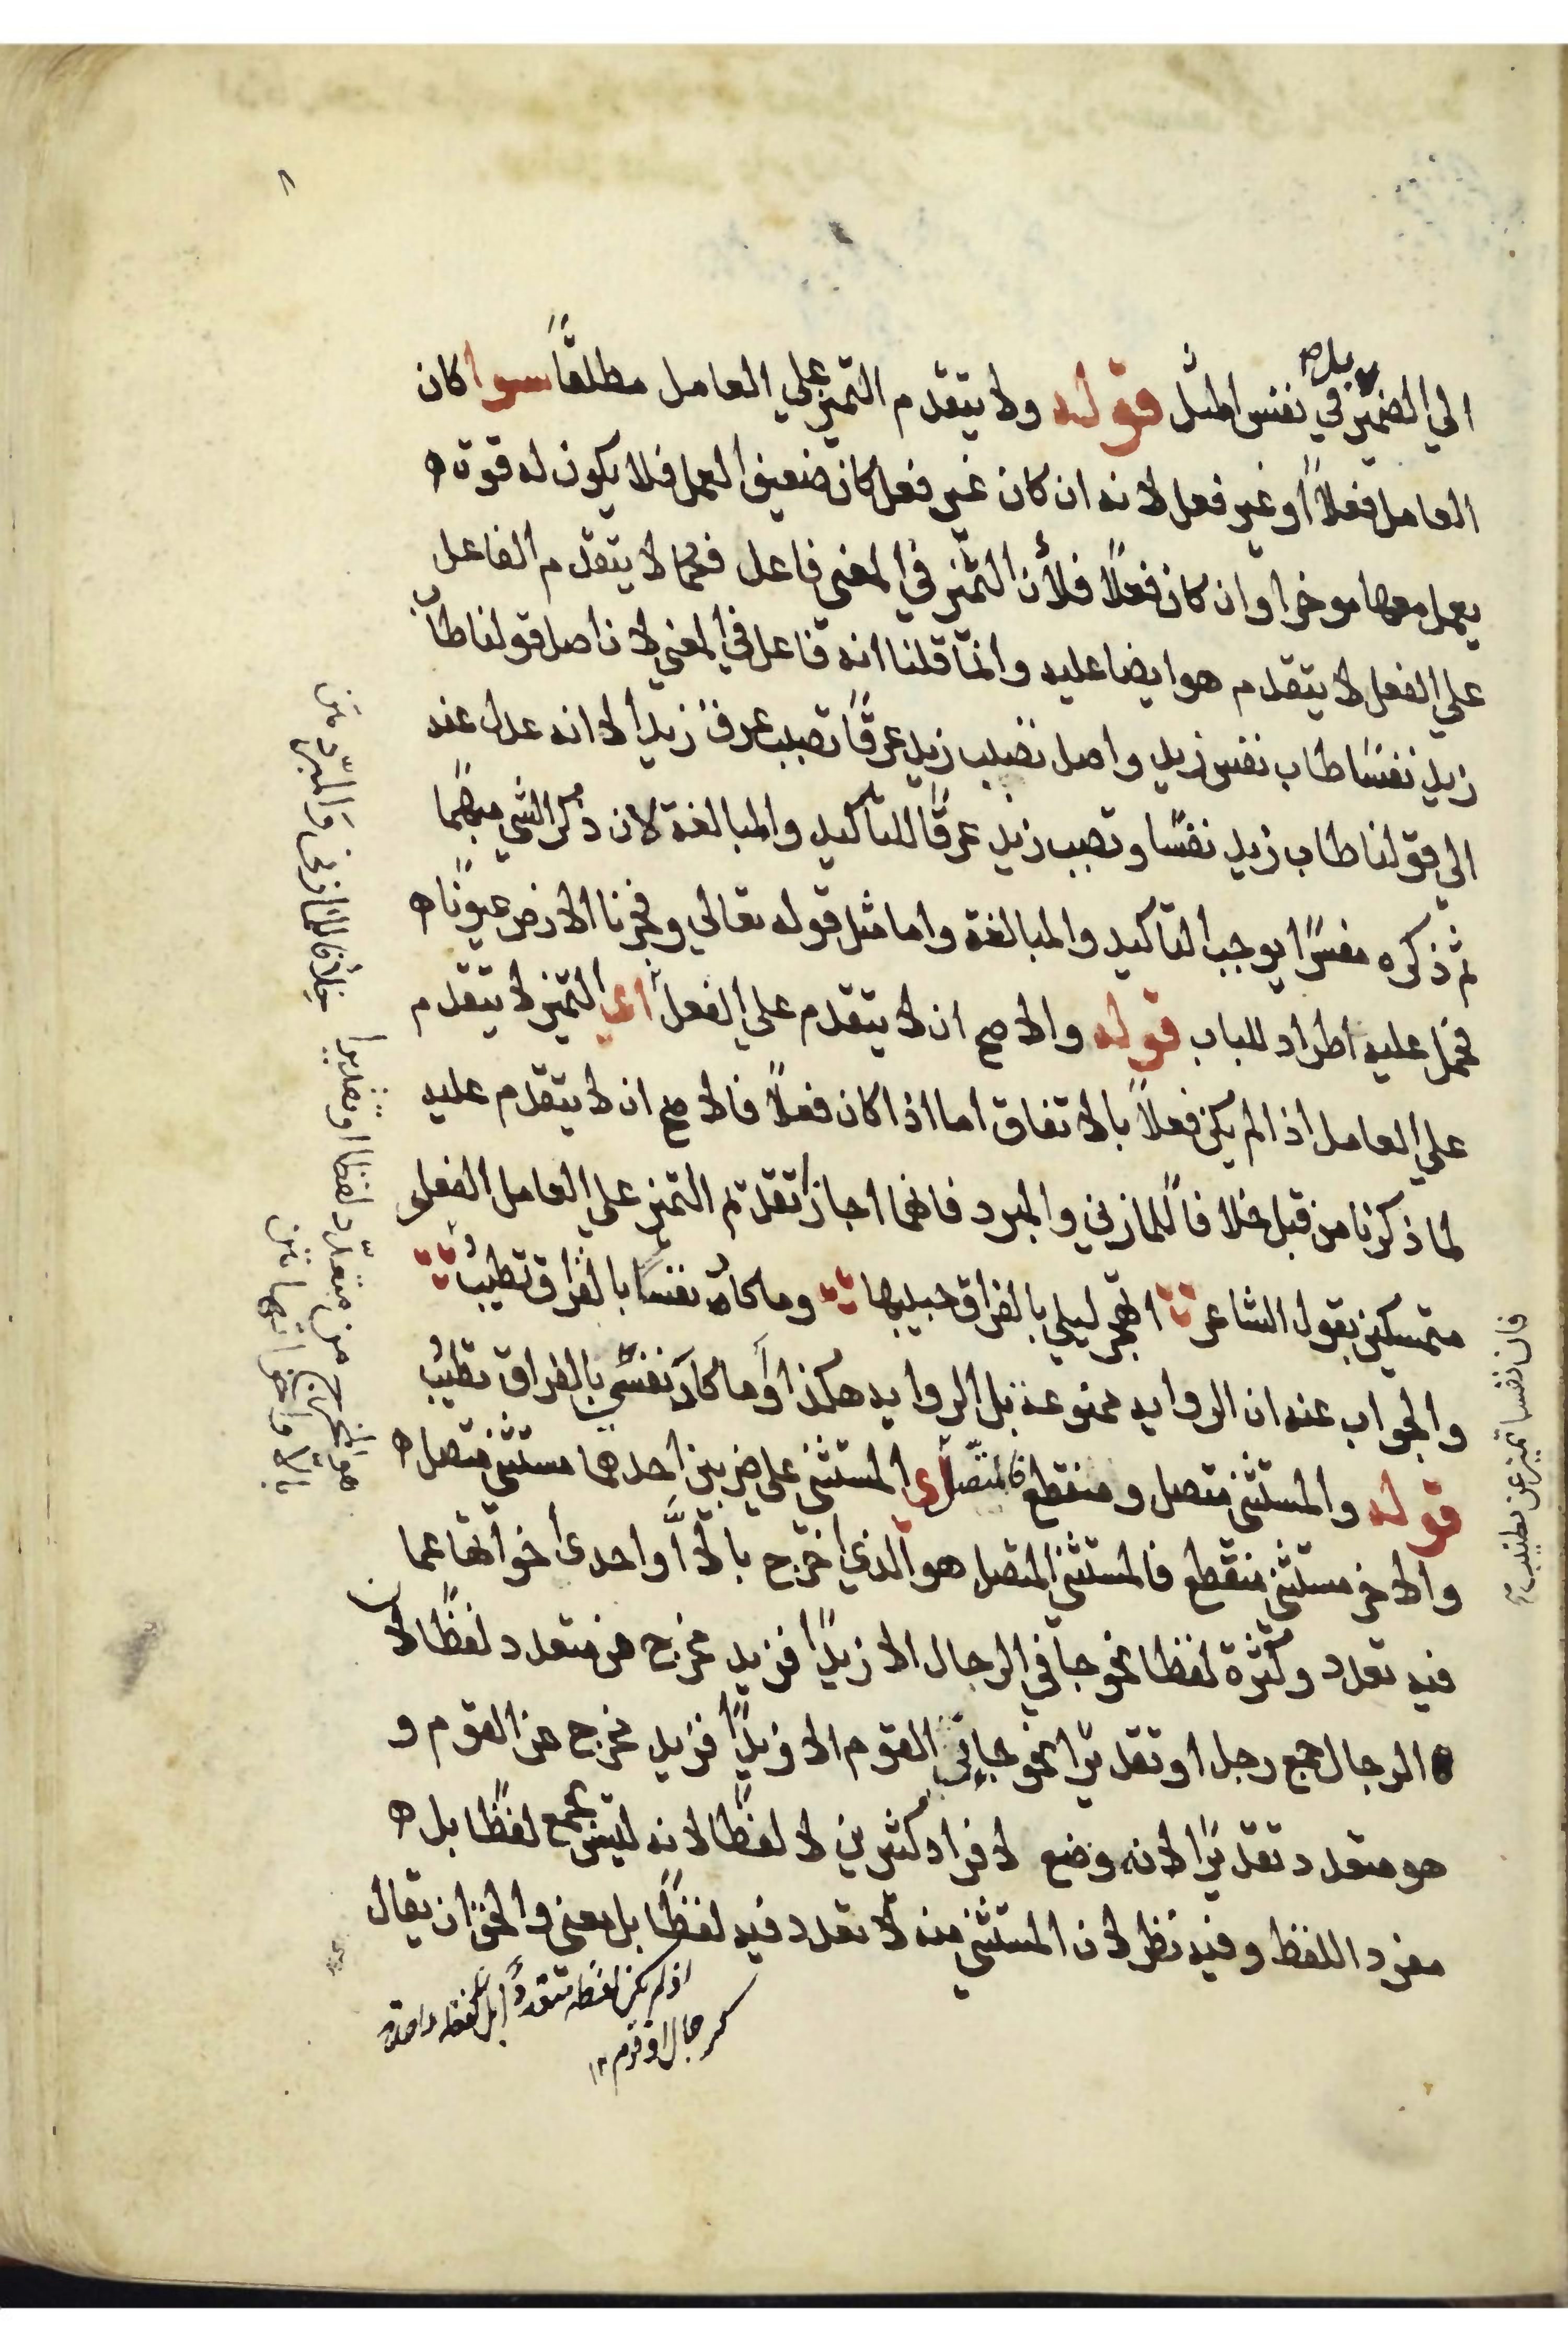 الي الضمير في نفس قوله ولا يتقدم التميز علي العامل مطلقاً سوا كان
العامل فعلاً او غير فعل لانه ان كان غير فعل كان ضعيف العمل فلا يكون له قوة
يعمل معها موخرا وان كان فعلاً فلأن التميز في المعني فاعل فكما لا يتقدم الفاعل
علي الفعل لا يتقدم هو ايضا عليه وانما قلنا انه فاعل في المعني لان اصل قولنا طاب
زيد نفسًا طاب نفس زيد واصل تصبب زيد عرقًا تصبب عرق زيد الا انه عدل عنه
الي قولنا طاب زيد نفسًا وتصبب زيد عرقًا للتأكيد والمبالغة لان ذكر الشي مبهمًا
ثم ذكره مفسرًا يوجب التأكيد والمبالغة واما مثل قوله تعالي وفجرنا الارض عيونًا
فحمل عليه اطراد للباب قوله والاصح ان لا يتقدم علي الفعل اي التميز لا يتقدم
علي العامل اذا لم يكن فعلاً بالاتفاق اما اذا كان فعلاً فالاصح ان لا يتقدم عليه
لما ذكرنا من قبل خلافاً للمازني والمبرد فانهما اجازا تقدم التميز علي العامل الفعل
متمسكين بقول الشاعر اتهجر ليلي بالفراق حبيبها وما كاد نفسًا بالفراق تطيبُ
والجواب عنه ان الروايه ممنوعة بل الروايه هكذا وما كاد نفسي بالفراق تطيبُ
قوله والمستثني متصل ومنقطع فالمتصل اي المستثني علي ضربين احدهما مستثني متصل
والاخر مستثني منقطع فالمستثني المتصل هو الذي اخرج بالا او احدى اخواتها عما
فيه تعدد وكثرة لفظا نحو جاني الرجال الا زيدًا فزيد مخرج من متعدد لفظًا لان
الرجال جمع رجل او تقديرًا نحو جاني القوم الا زيدًا فزيد مخرج عن القوم و
هو متعدد تقديرًا لانه وضع لافراد كثيرين لا لفظًا لانه ليس بجمع لفظًا بل
مفرد اللفظ وفيه نظر لان المستثني منه لا تعدد فيه لفظًا بل معني والحق ان يقال
اذ لم يكن لفظه متعددًا بل لفظه واحد
كرجال او قوم ١٢
خلافًا للمازني والمبرّد متن
هو المخرج من متعدّد لفظا او تقديرا
بالا واخواتها متن
فان نفسا تميز عن تطيب
٨